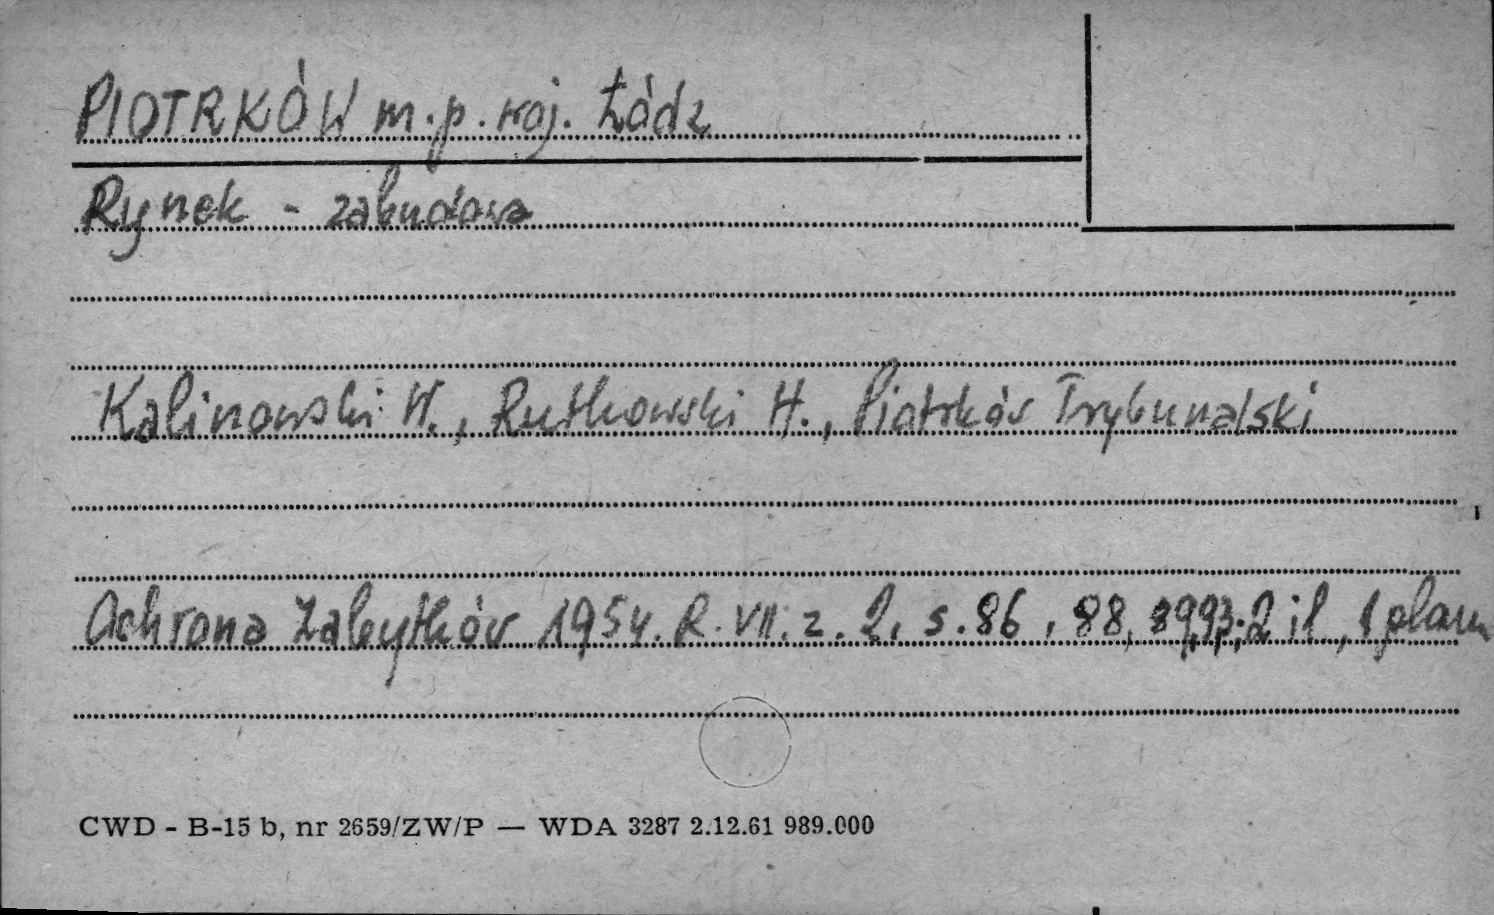 PIOTRKÓW m.p. woj. Łódź
Rynek - zabudowa
Kalinowski W., Rutkowski H., Piotrków Trybunalski
Ochrona Zabytków 1954. R. VII. z. 2, s. 86, 88, 89,93; 2 il., 1 plan
CWD - B-15 b, nr 2659/ZW/P — WDA 3287 2.12.61 989.000